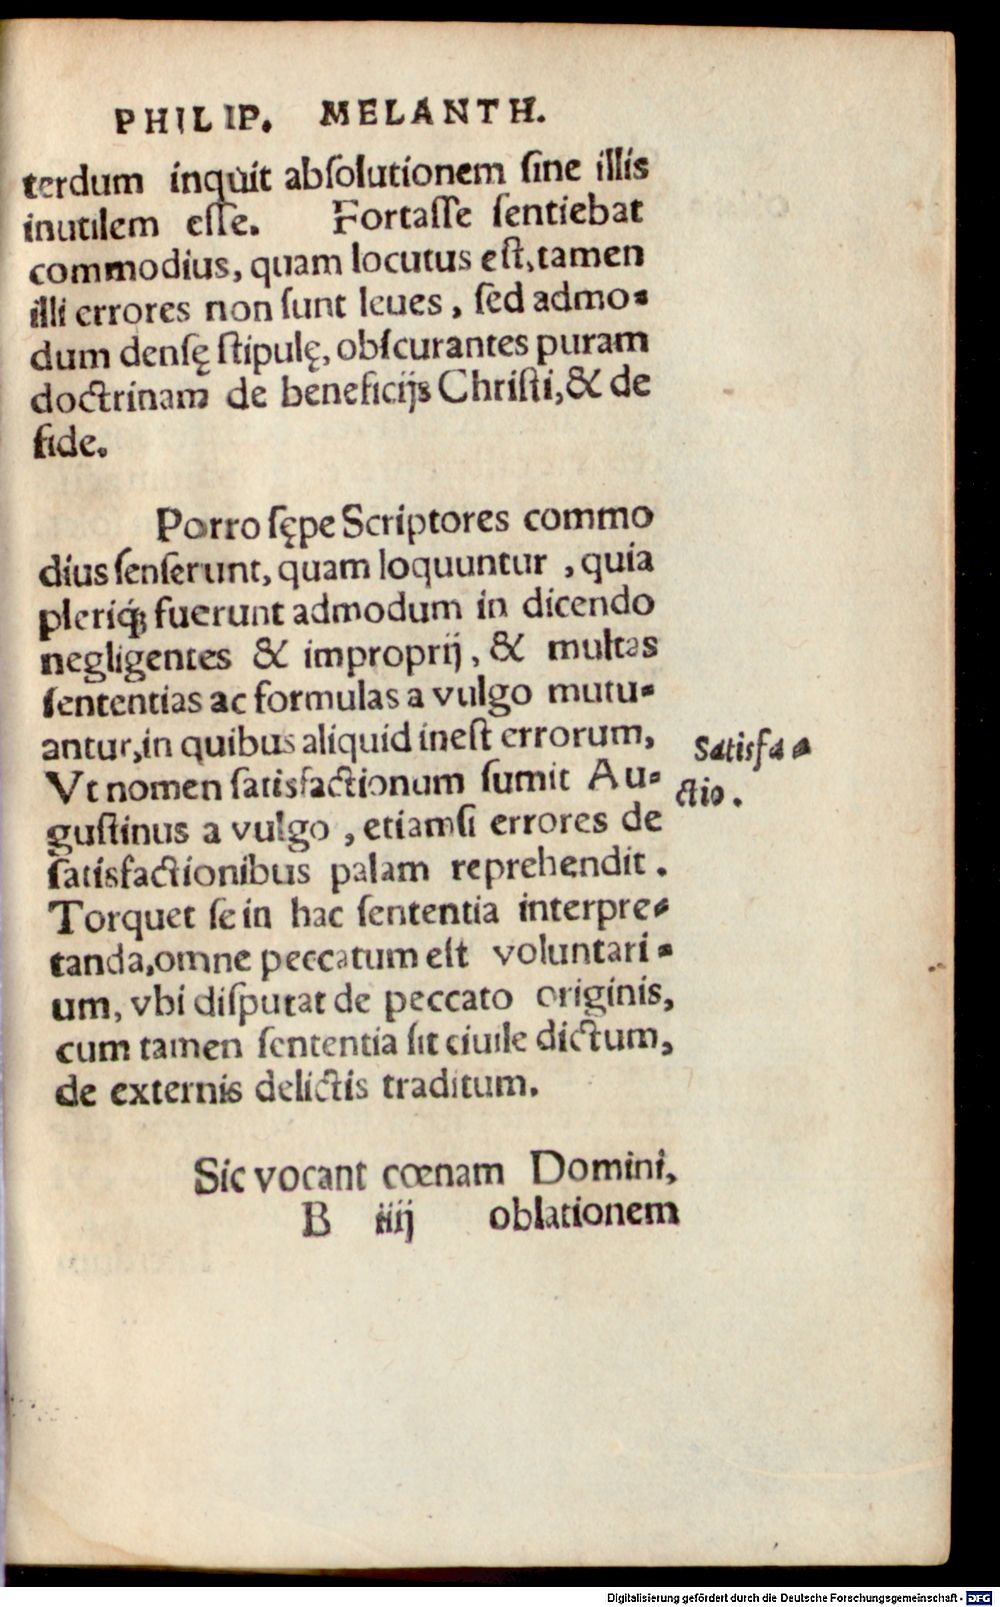 PHILIP. MELANTH.
terdum inquit abſolutionem ſine illis
inutilem eſſe. Fortaſſe ſentiebat
commodius, quam locutus eſt, tamen
illi errores non ſunt leues, ſed admo-
dum denſę ſtipulę, obſcurantes puram
doctrinam de beneficijs Chriſti, & de
fide.
Porro ſępe Scriptores commo
dius ſenſerunt, quam loquuntur, quia
pleriq́ꝫ fuerunt admodum in dicendo
negligentes & improprij, & multas
ſententias ac formulas a vulgo mutu-
antur, in quibus aliquid ineſt errorum,
Vt nomen ſatisfactionum ſumit Au-
guſtinus a vulgo, etiamſi errores de
ſatisfactionibus palam reprehendit.
Torquet ſe in hac ſententia interpre-
tanda, omne peccatum eſt voluntari-
um, vbi diſputat de peccato originis,
cum tamen ſententia ſit ciuile dictum,
de externis delictis traditum.
Satisfa-
ctio.
Sic vocant cœnam Domini,
B iiij oblationem
Digitalisierung gefördert durch die Deutsche Forschungsgemeinschaft - DFG